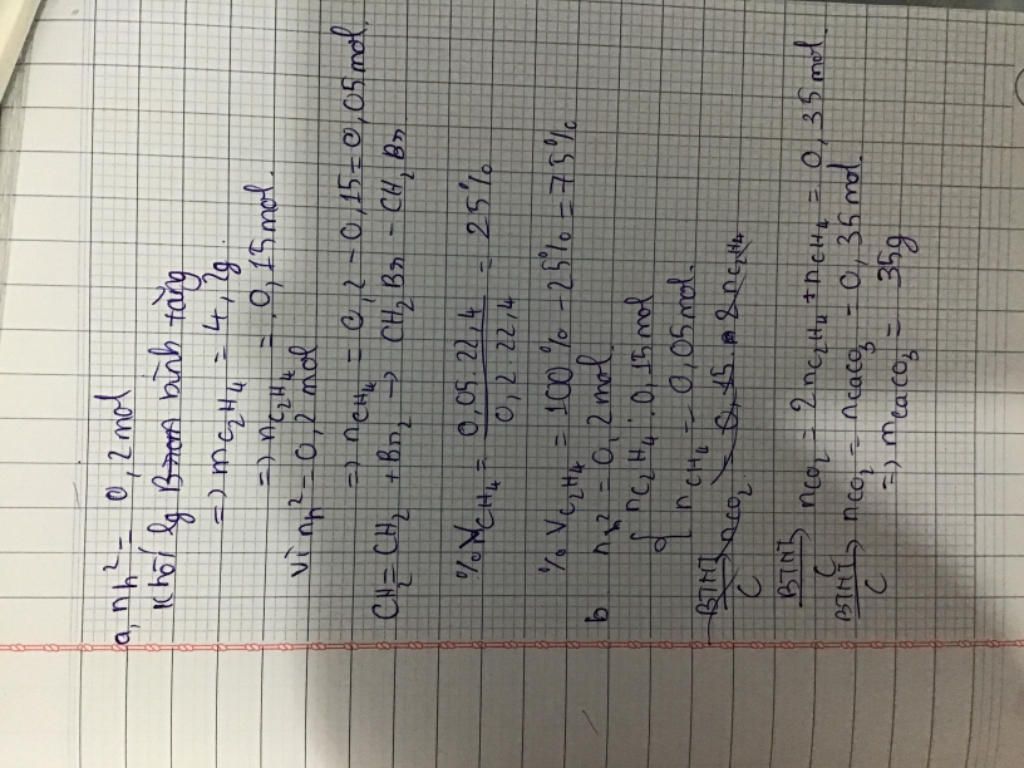 a, nh² = 0,2 mol
Khối lg bình tăng
=> mC₂H₄ = 4,2g
=> nC₂H₄ = 0,15 mol.
Vì nh² = 0,2 mol
=> nCH₄ = 0,2 - 0,15 = 0,05 mol.
CH₂ = CH₂ + Br₂ → CH₂Br - CH₂Br
%VCH₄ = 0,05.22,4 / 0,2 22,4 = 25%
%VC₂H₄ = 100% - 25% = 75%
b nh² = 0,2 mol.
{ nC₂H₄ : 0,15 mol
nCH₄ = 0,05 mol.
BTNT C → nCO₂ = 0,15 . 2 nC₂H₄
BTNT C → nCO₂ = 2nC₂H₄ + nCH₄ = 0,35 mol.
BTNT C → nCO₂ = nCaCO₃ = 0,35 mol.
=> mCaCO₃ = 35g